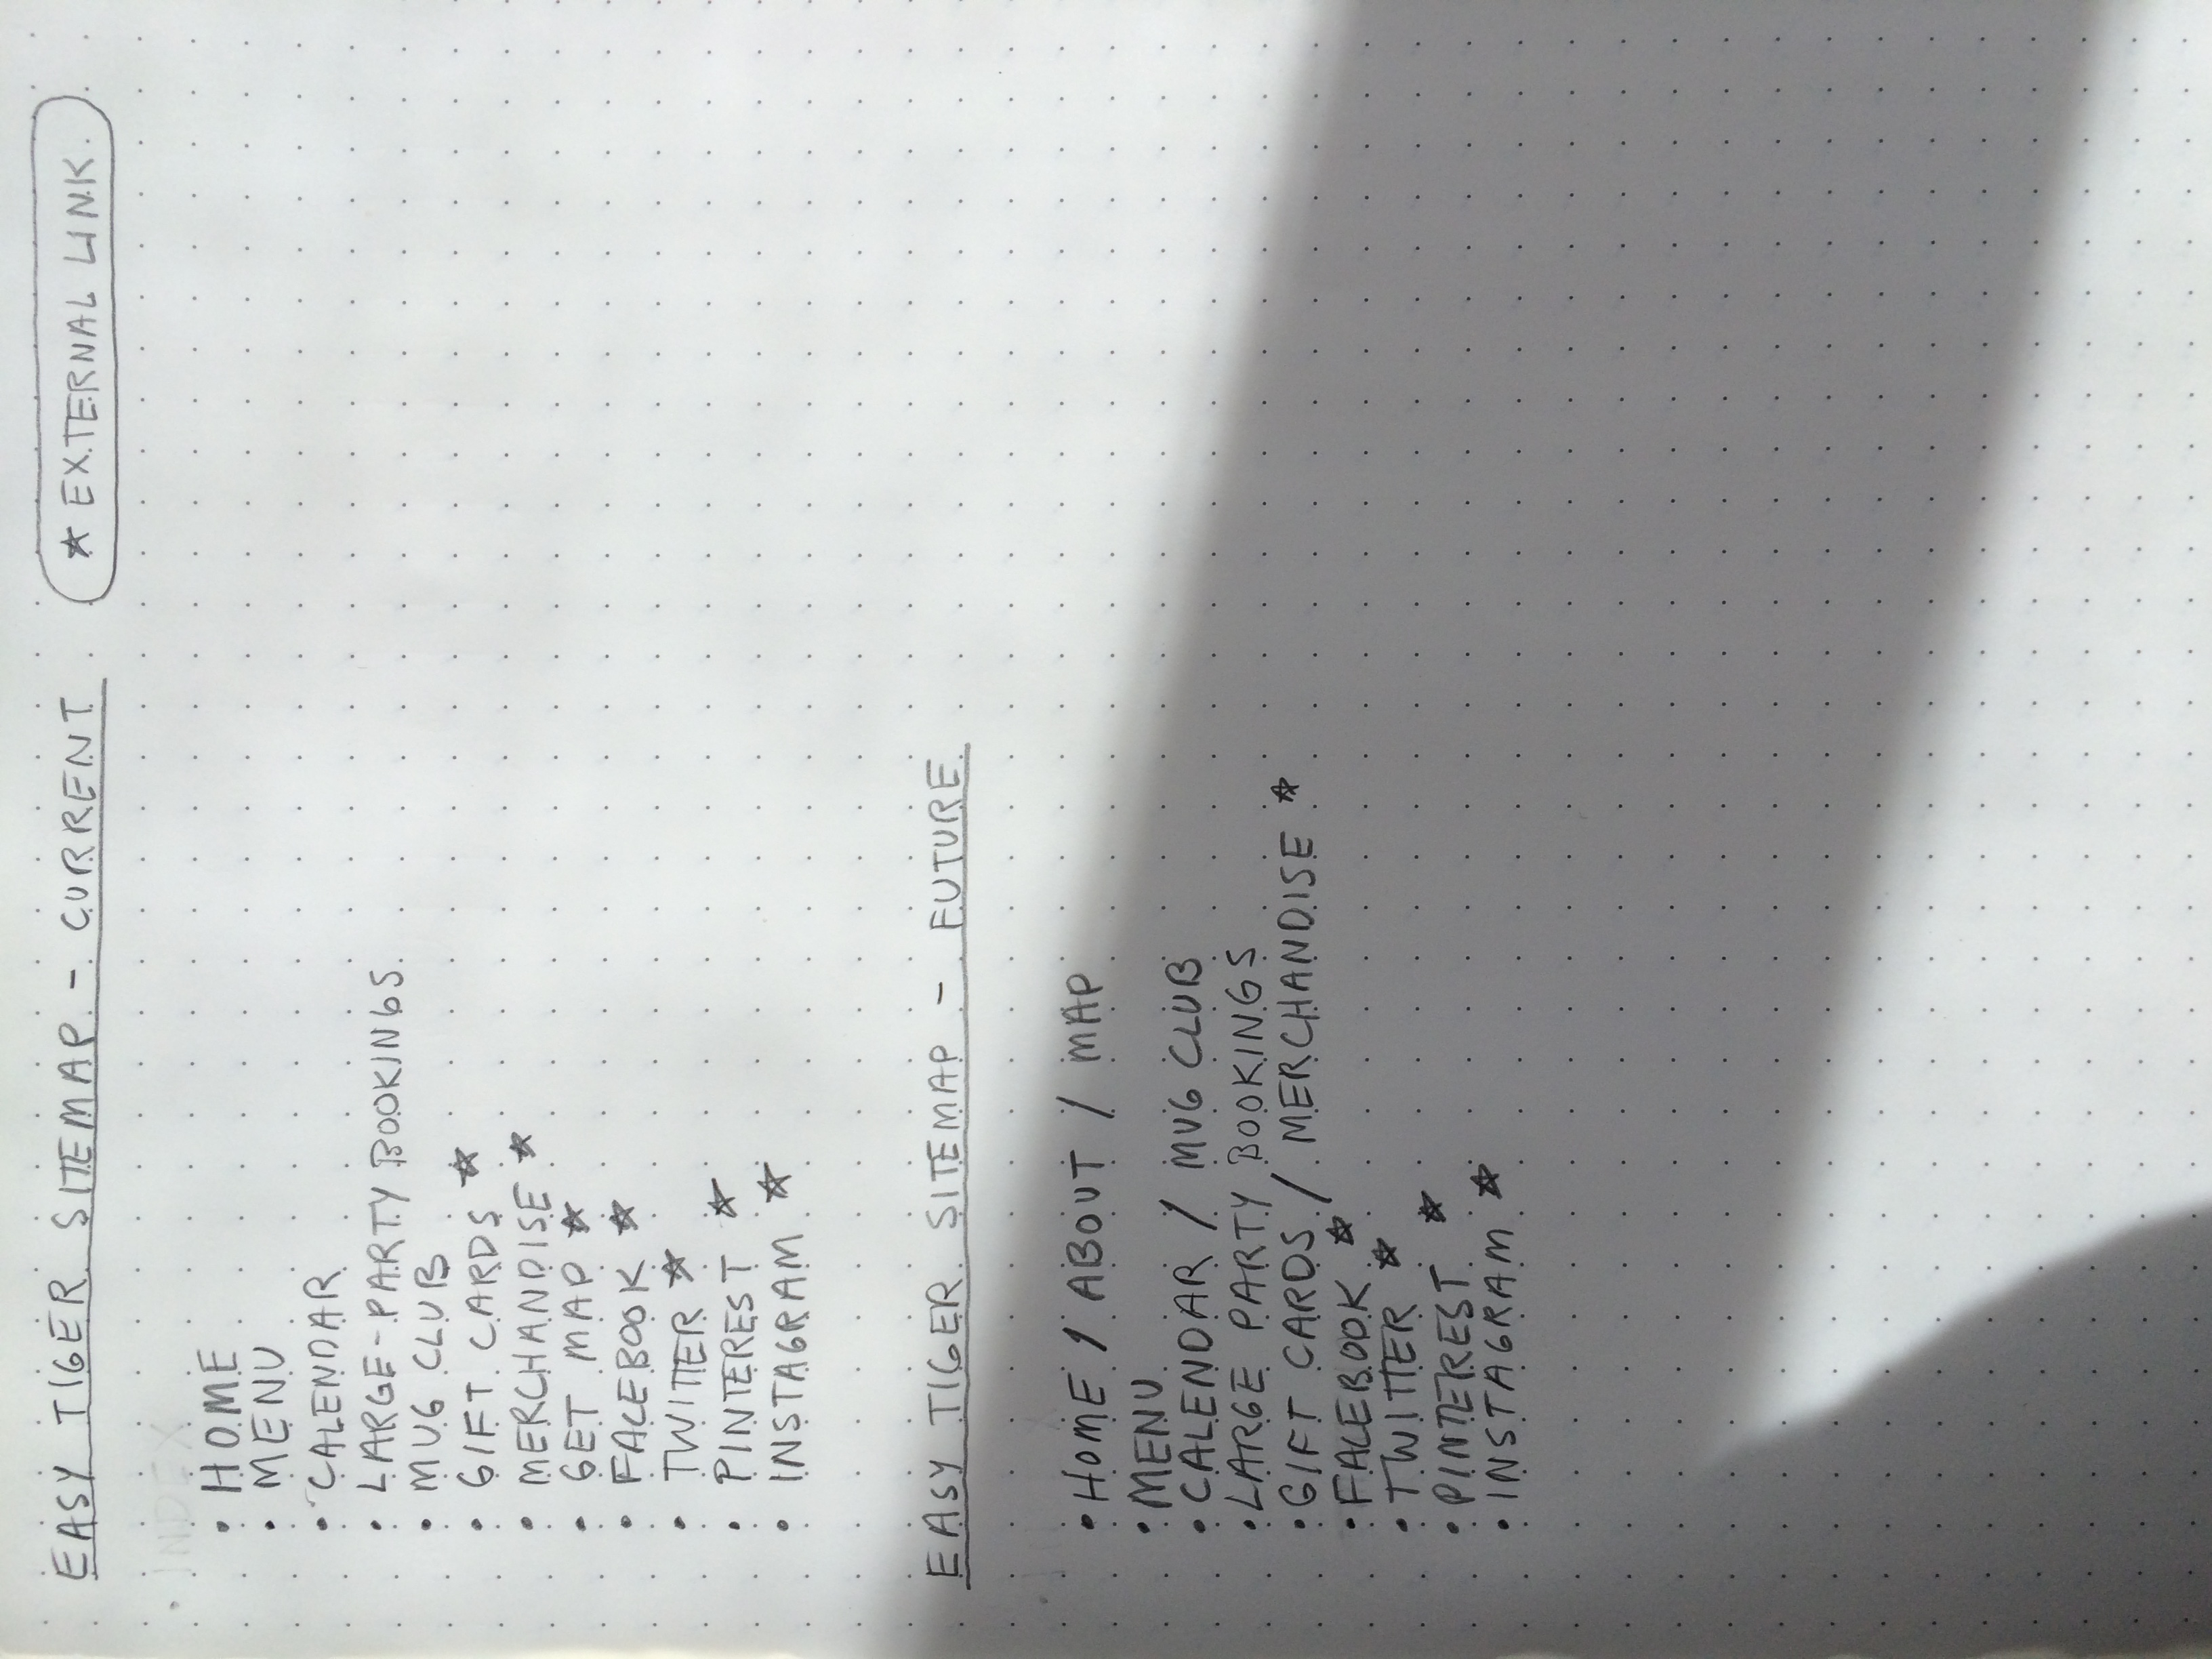 EASY TIGER SITEMAP - CURRENT ★ EXTERNAL LINK
INDEX
• HOME
• MENU
• CALENDAR
• LARGE-PARTY BOOKINGS
• MUG CLUB
• GIFT CARDS ★
• MERCHANDISE ★
• GET MAP ★
• FACEBOOK ★
• TWITTER ★
• PINTEREST ★
• INSTAGRAM ★
EASY TIGER SITEMAP - FUTURE
• HOME / ABOUT / MAP
• MENU
• CALENDAR / MUG CLUB
• LARGE PARTY BOOKINGS
• GIFT CARDS / MERCHANDISE ★
• FACEBOOK ★
• TWITTER ★
• PINTEREST ★
• INSTAGRAM ★